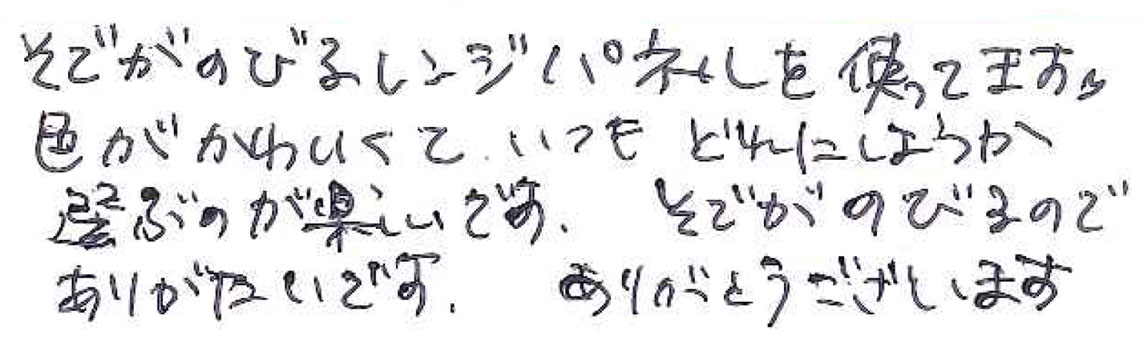 そでがのびるレンジパネルを使ってます。
色がかわいくて、いつもどれにしようか
選ぶのが楽しいです。 そでがのびるので
ありがたいです。 ありがとうございます